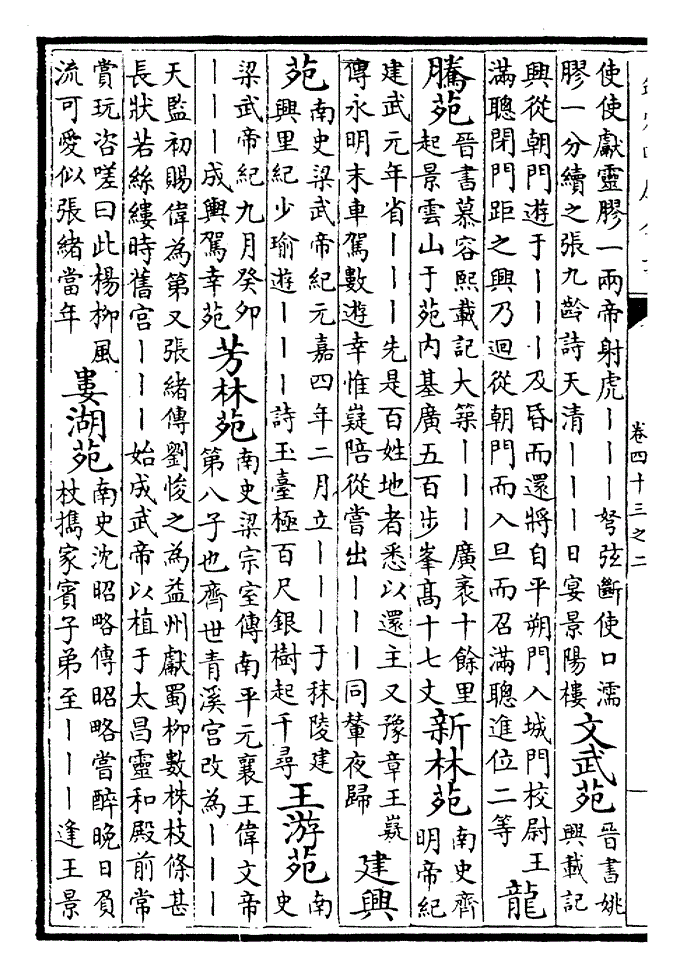 卷四十三之二
使使獻靈膠一兩帝射虎丨丨丨弩弦斷使口濡
膠一分續之張九齡詩天清丨丨丨日宴景陽樓
文武苑
晉書姚
興載記
興從朝門遊于丨丨丨及昏而還將自平朔門入城門校尉王
滿聰閉門距之興乃迴從朝門而入旦而召滿聰進位二等
龍
騰苑
晉書慕容熙載記大築丨丨丨廣袤十餘里
起景雲山于苑内基廣五百步峯髙十七丈
新林苑
南史齊
明帝紀
建武元年省丨丨丨先是百姓地者悉以還主又豫章王嶷
傳永明末車駕數遊幸惟嶷陪從嘗出丨丨丨同輦夜歸
建興
苑
南史梁武帝紀元嘉四年二月立丨丨丨于秣陵建
興里紀少瑜遊丨丨丨詩玉臺極百尺銀樹起千尋
王游苑
南
史
梁武帝紀九月癸卯
丨丨丨成輿駕幸苑
芳林苑
南史梁宗室傳南平元襄王偉文帝
第八子也齊世青溪宫改為丨丨丨
天監初賜偉為第又張緒傳劉悛之為益州獻蜀柳數株枝條甚
長狀若絲縷時舊宫丨丨丨始成武帝以植于太昌靈和殿前常
賞玩咨嗟曰此楊柳風
流可愛似張緒當年
婁湖苑
南史沈昭略傳昭略嘗醉晚日負
杖攜家賓子弟至丨丨丨逢王景